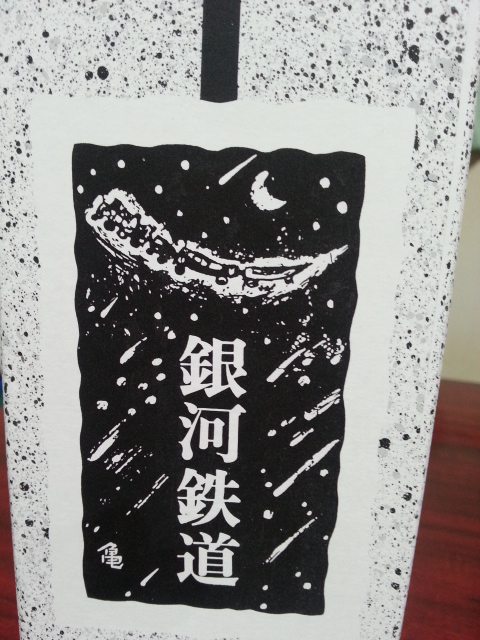 銀河鉄道
亀